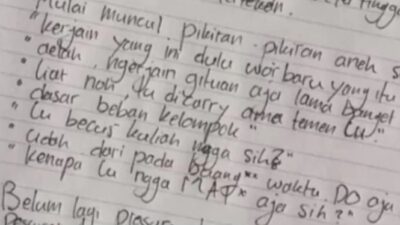 Mulai muncul pikiran-pikiran aneh s
"kerjain yang ini dulu woi baru yang itu
• aelah, ngerjain gituan aja lama banget
• liat noh, lu dicarry ama temen lu."
• dasar beban kelompok"
"Lu becus kuliah ngga sih?"
• udah dari pada buang** waktu, DO aja
"kenapa lu ngga M*A*P* aja sih?"
Belum lagi